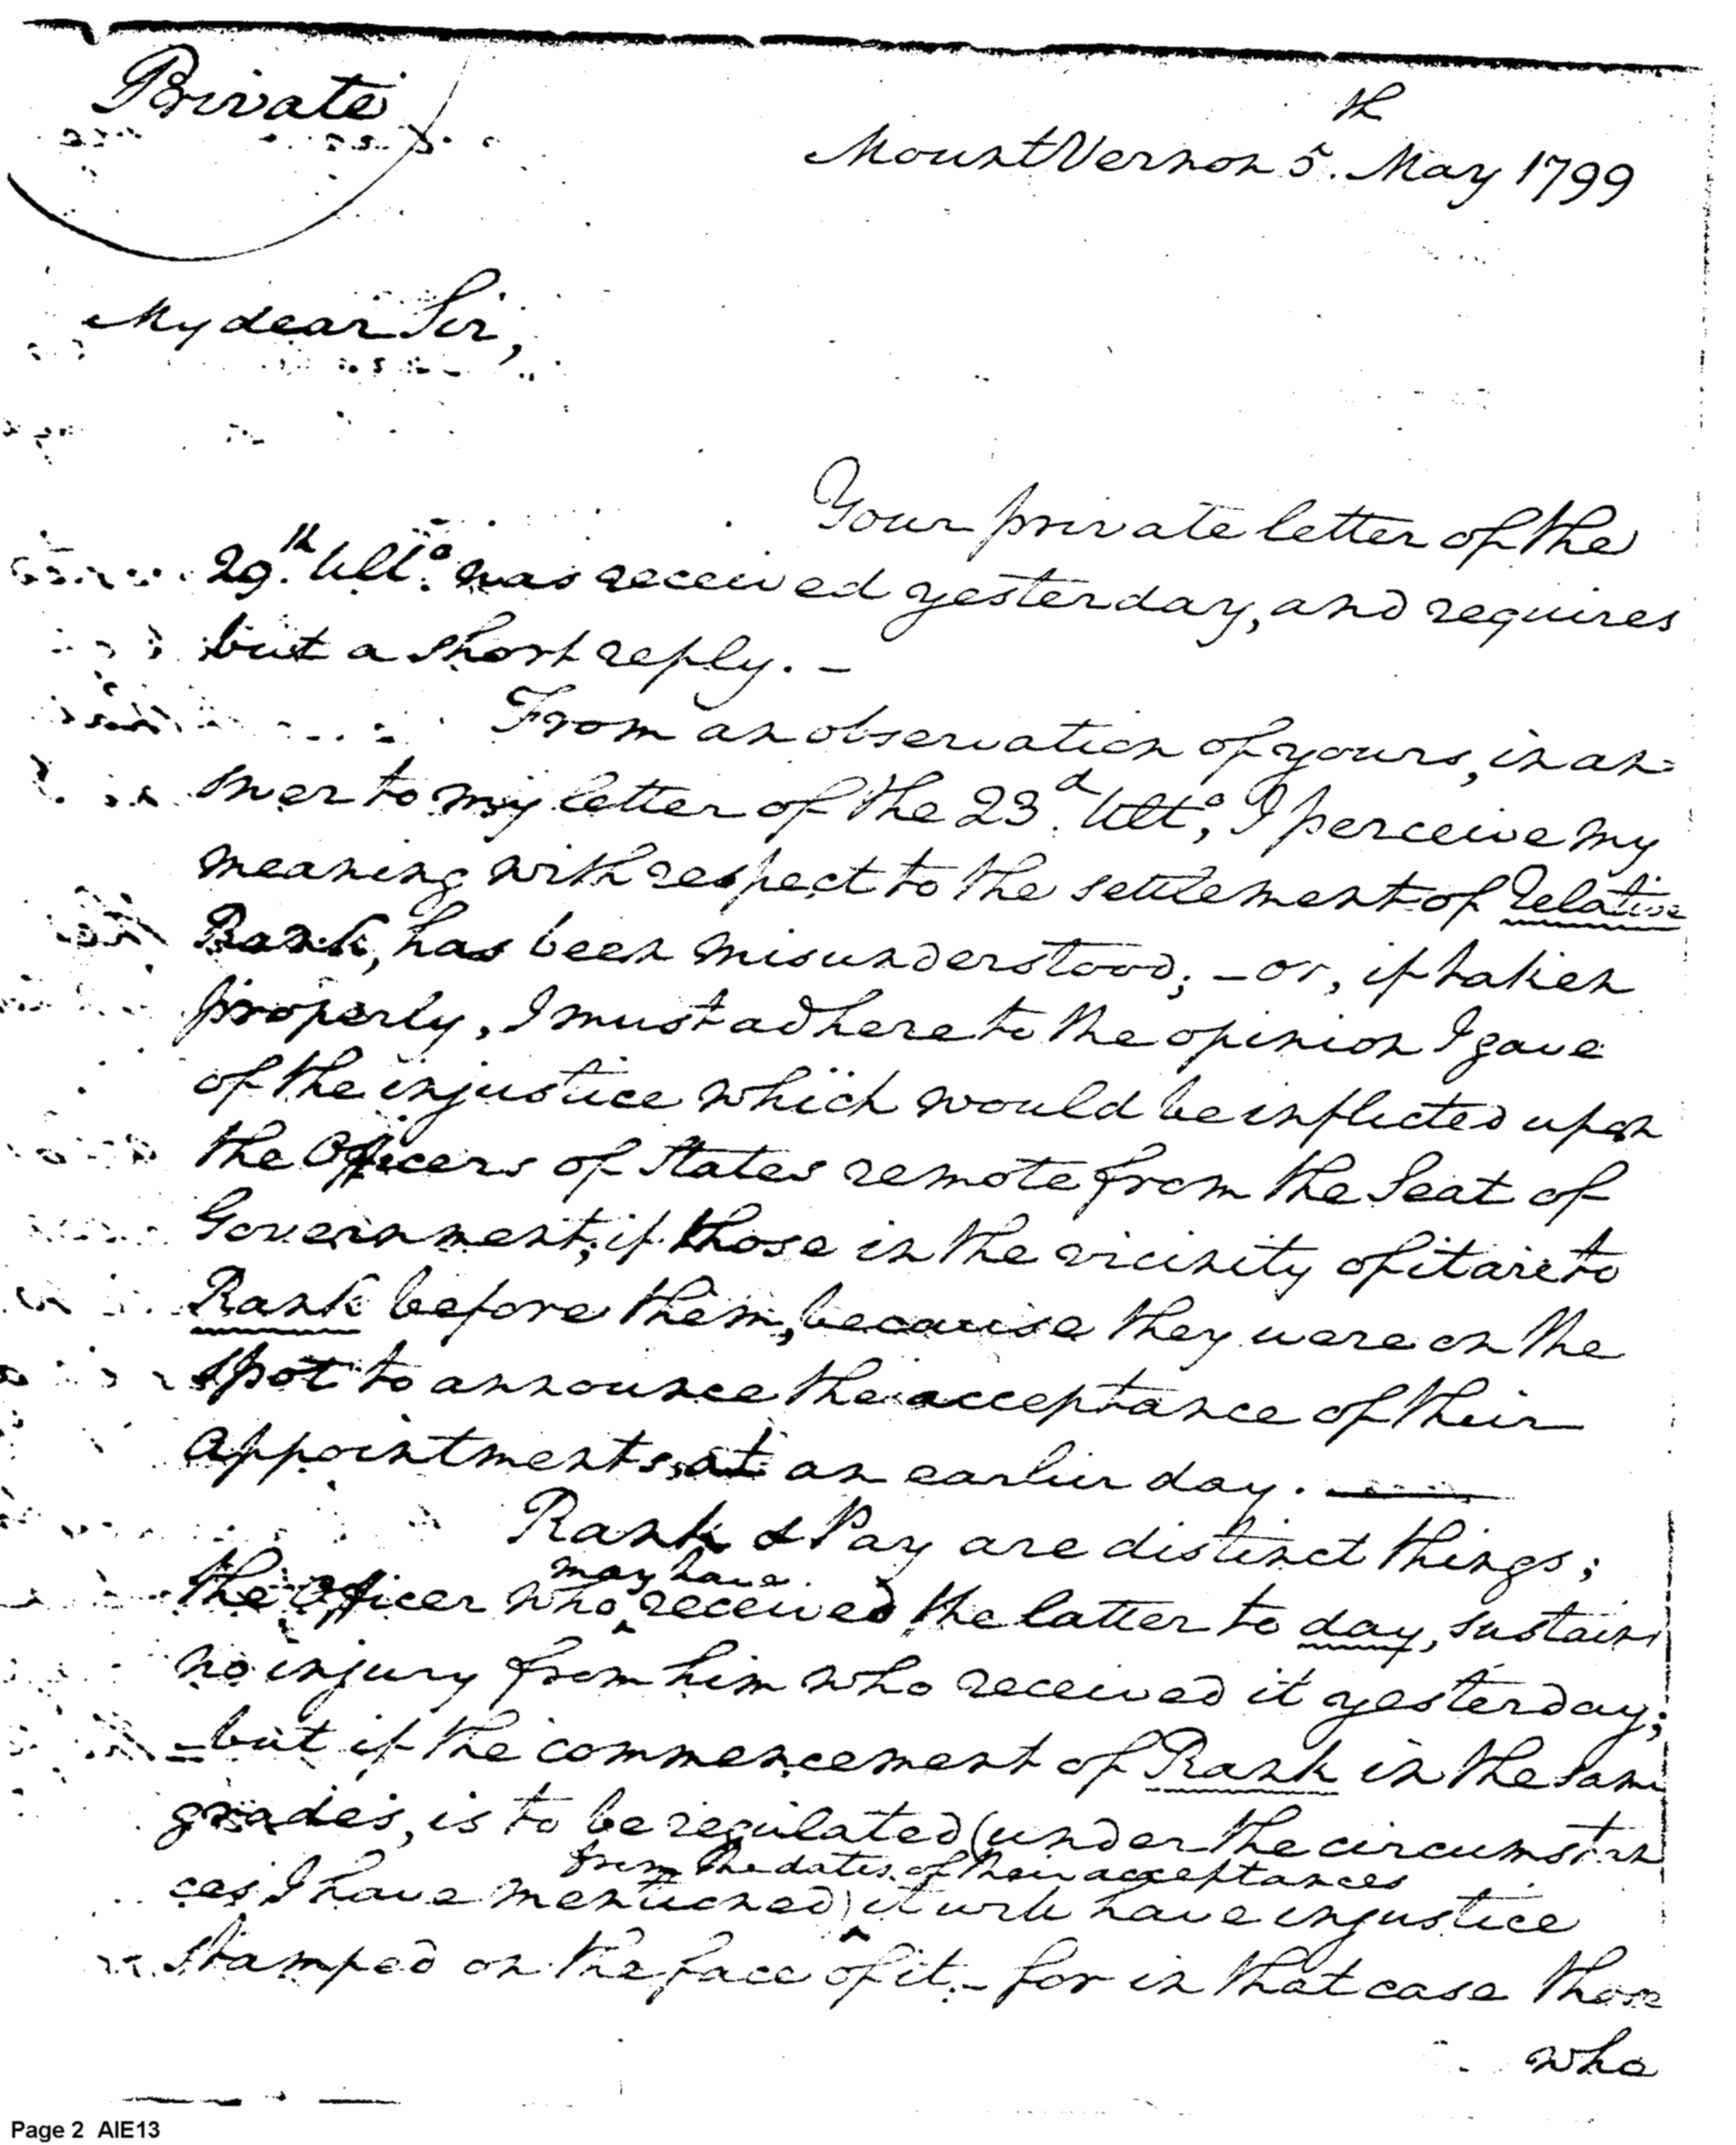 Private
Mount Vernon 5th. May 1799
My dear Sir,
Your private letter of the
29th. Ullo. was received yesterday, and requires
but a short reply. –
From an observation of yours, in an=
swer to my letter of the 23d. Ulto, I perceive my
meaning with respect to the settlement of relative
Rank, has been misunderstood; – or, if taken
properly, I must adhere to the opinion I gave
of the injustice which would be inflicted upon
the Officers of States remote from the Seat of
Government, if those in the vicinity of it are to
Rank before them, because they were on the
spot to announce the acceptance of their
Appointments, at an earlier day. ——
Rank & Pay are distinct things;
may have
the Officer who ‸ received the latter to day, sustains
no injury from him who received it yesterday;
– but if the commencement of Rank in the same
grades, is to be regulated (under the circumstan
from the dates of their acceptances
ces I have mentioned) ‸ it will have injustice
stamped on the face of it. – for in that case those
who
Page 2 AIE13